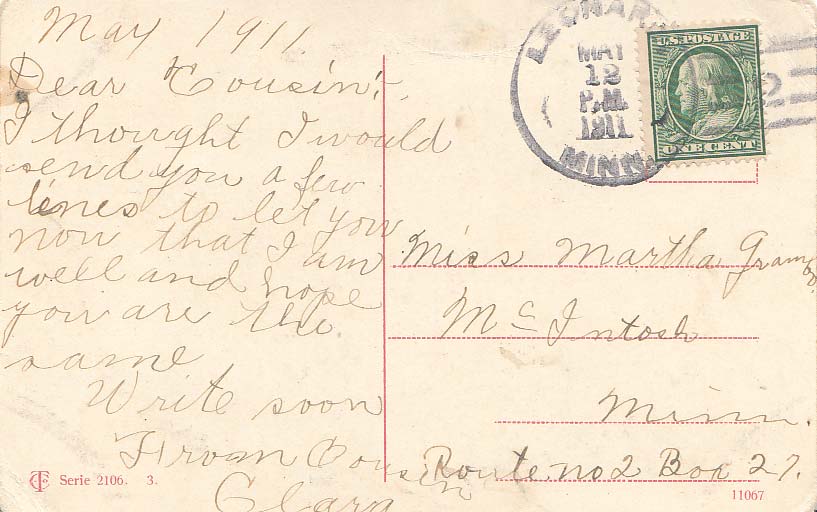 May 1911.
Dear Cousin;
I thought I would
send you a few
lines to let you
now that I am
well and hope
you are the
same
Write soon
From Cousin
Clara
LEONARD
MAY
12
P.M.
1911
MINN.
U.S. POSTAGE
ONE CENT
2
Miss Martha
McIntosh
Minn.
Route no 2 Box 27.
Serie 2106. 3.
11067